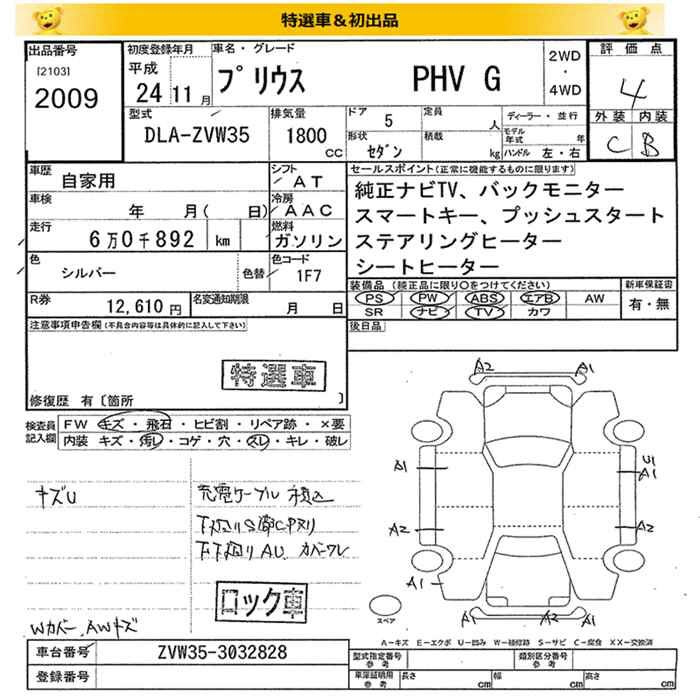 特選車＆初出品
出品番号
[2103]
2009
初度登録年月
平成
24 11 月
車名・グレード
プリウス PHV G
2WD
・
4WD
評価点
4
外装 内装
C B
型式
DLA-ZVW35
排気量
1800
CC
ドア
5
形状
セダン
定員
人
積載
kg
ディーラー・並行
モデル
年式 年
ハンドル 左・右
車歴
自家用
シフト
AT
車検
年 月( 日)
冷房
AAC
走行
6万0千892 km
燃料
ガソリン
色
シルバー
色替
色コード
1F7
R券
12,610 円
名変通知期限
月 日
セールスポイント(正常に機能するものに限ります)
純正ナビTV、バックモニター
スマートキー、プッシュスタート
ステアリングヒーター
シートヒーター
装備品(純正品に限り○をつけてください)
PS PW ABS エアB AW
SR ナビ TV カワ
新車保証書
有・無
後日品
注意事項申告欄(不具合内容等は具体的に記入して下さい)
特選車
修復歴 有〔箇所 〕
検査員
記入欄
FW キズ・飛石・ヒビ割・リペア跡・×要
内装 キズ・汚レ・コゲ・穴・スレ・キレ・破レ
キズU
充電ケーブル積込
下廻りS箇CPヌリ
下廻りAU カバーワレ
ロック車
Wカバー、AWキズ
A2 A1
A1
U1
A1
A2
A2
A1
A1 A2 A1
スペア
A−キズ E−エクボ U−凹み W−補修跡 S−サビ C−腐食 XX−交換済
車台番号
ZVW35-3032828
登録番号
型式指定番号
参考
類別区分番号
参考
車庫証明用
参考
長さ cm
幅 cm
高さ cm